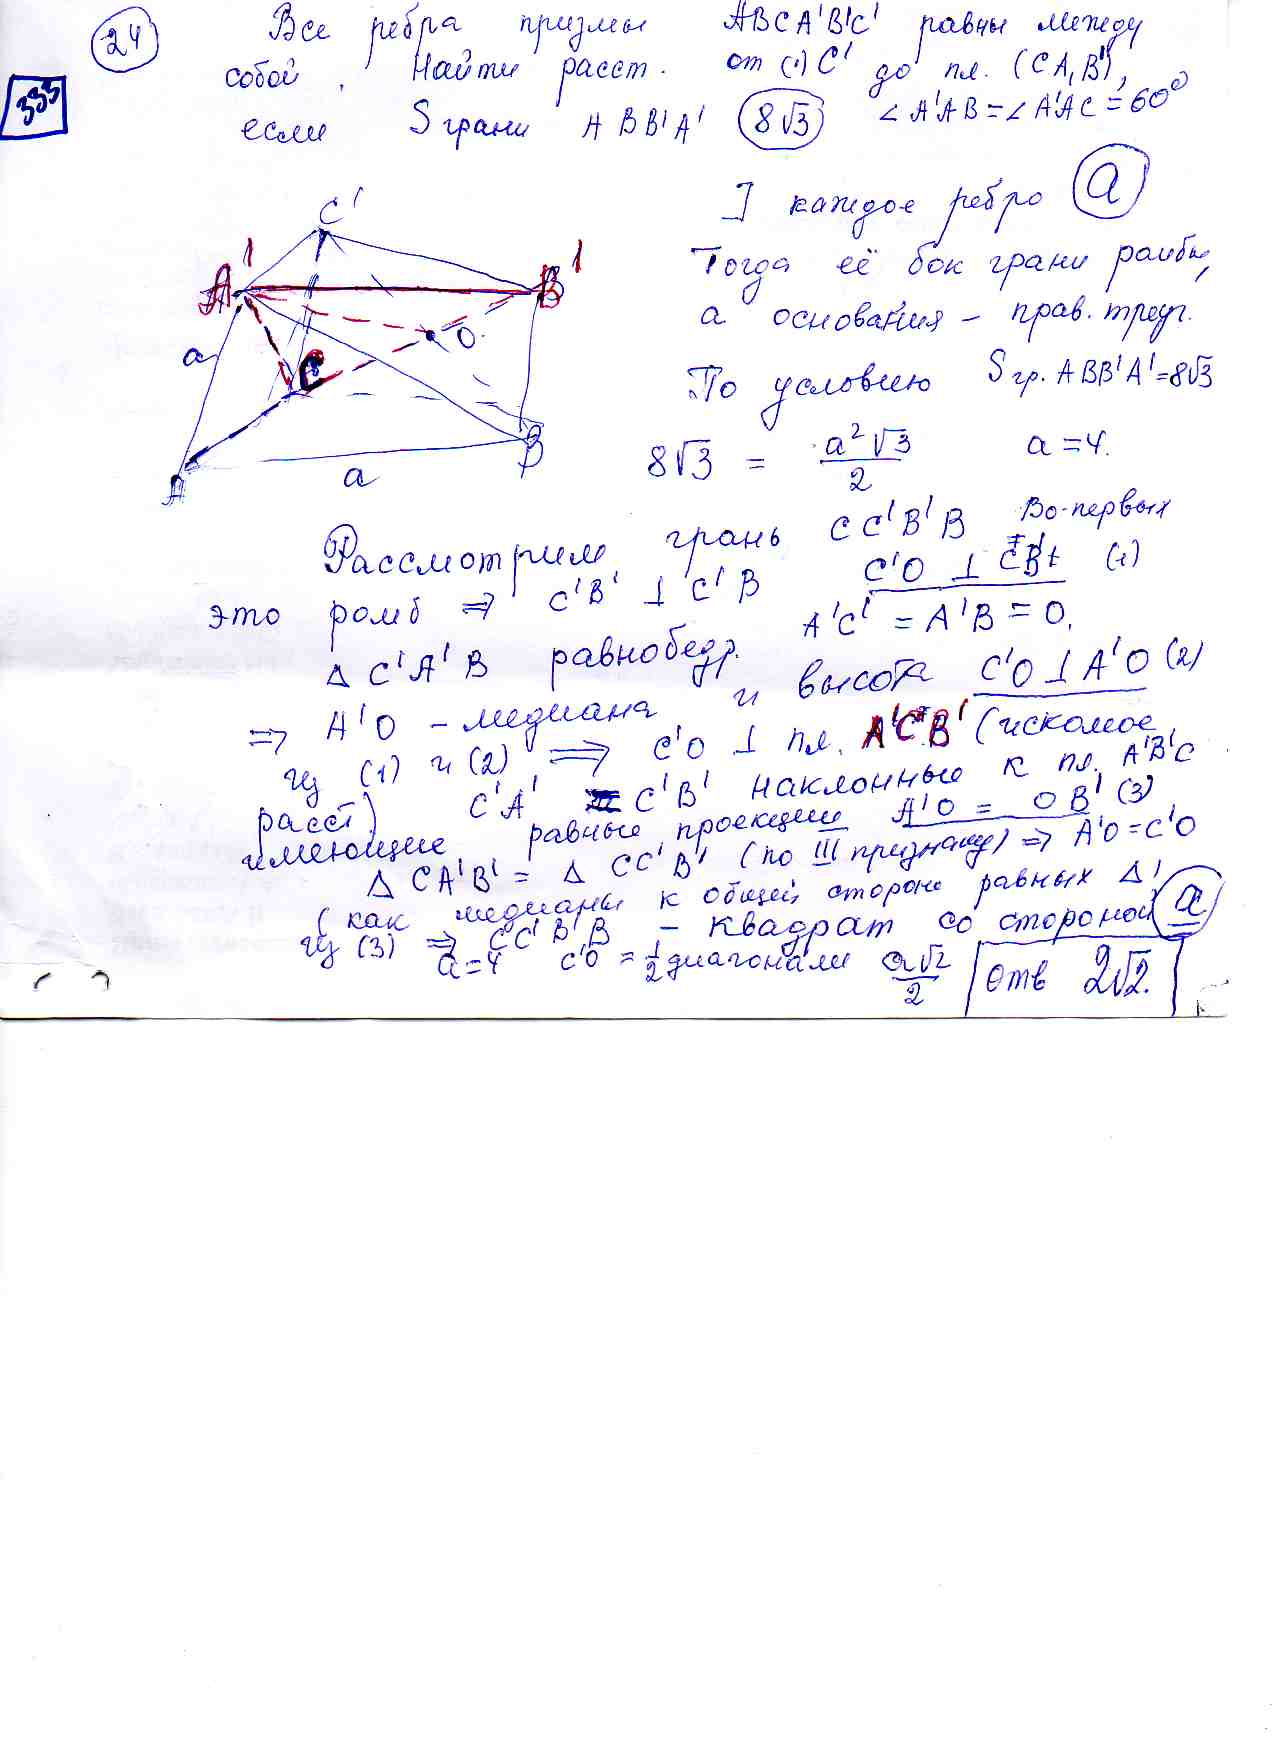 24
333
Все ребра призмы ABCA'B'C' равны между
собой. Найти расст. от (·) C' до пл. (CA,B'),
если S грани ABB'A' 8√3 ∠A'AB = ∠A'AC = 60°
C'
A' B'
a O
C
A a B
] каждое ребро a
Тогда её бок грани ромбы,
а основания – прав. треуг.
По условию S гр. ABB'A' = 8√3
8√3 = a²√3/2 a = 4.
Рассмотрим грань CC'B'B Во-первых
это ромб ⇒ C'B' ⊥ C'B C'O ⊥ CB' (1)
Δ C'A'B равнобедр. A'C' = A'B = O,
⇒ A'O – медиана и высота C'O ⊥ A'O (2)
из (1) и (2) ⇒ C'O ⊥ пл. A'C'B' (искомое
расст) C'A' C'B' наклонные к пл. A'B'C
имеющие равные проекции A'O = OB' (3)
Δ CA'B' = Δ CC'B' (по III признаку) ⇒ A'O = C'O
(как медианы к общей стороне равных Δ)
из (3) ⇒ CC'B'B – квадрат со стороной a
a = 4 C'O = 1/2 диагонали a√2/2 Отв 2√2.